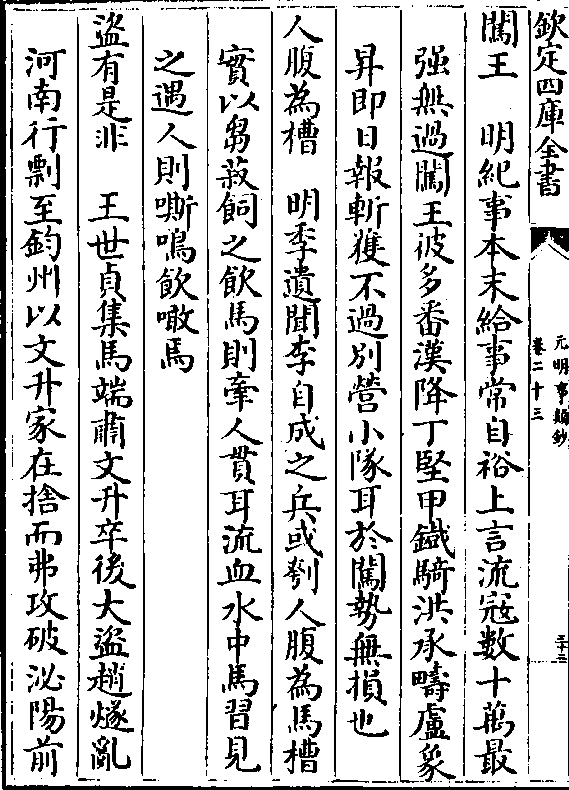 欽定四庫全書
元明事類鈔
卷二十三
三十三
闖王　明紀事本末給事常自裕上言流寇數十萬最
强無過闖王彼多番漢降丁堅甲鐵騎洪承疇盧象
昇即日報斬獲不過别營小隊耳於闖勢無損也
人腹為槽　明季遺聞李自成之兵或刳人腹為馬槽
實以芻菽飼之飲馬則牽人貫耳流血水中馬習見
之遇人則嘶鳴飲噉焉
盜有是非　王世貞集馬端肅文升卒後大盜趙燧亂
河南行剽至鈞州以文升家在捨而弗攻破泌陽前